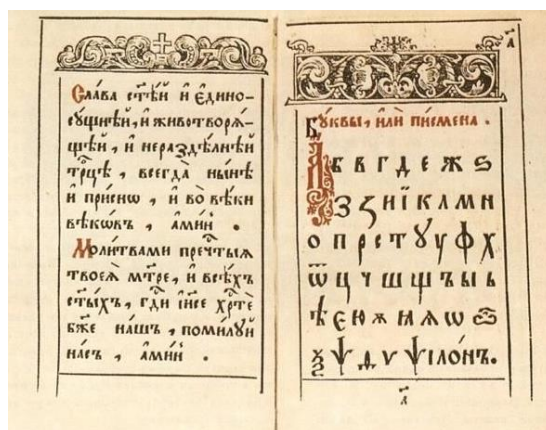 Сла́ва ст҃ѣ́й и҆ є҆дино-
су́щнѣй, и҆ животворѧ́-
щѣй, и҆ нераздѣ́лнѣй
трⷪ҇цѣ, всегда̀ ны́нѣ
и҆ при́снѡ, и҆ во вѣ́ки
вѣкѡ́въ, а҆ми́нь.
Моли́твами пречⷭ҇тыѧ
твоеѧ̀ мт҃ре, и҆ всѣ́хъ
ст҃ы́хъ, гдⷭ҇и і҆и҃се хрⷭ҇тѐ
бж҃е на́шъ, поми́лꙋй
на́съ, а҆ми́нь.
а҃
Бꙋ́квы, и҆лѝ пи́смена.
А б в г д е ж ѕ
З ꙁ и ї к л м н
о п р с т ꙋ у ф х
ѿ ц ч ш щ ъ ы ь
ѣ є ю ѫ ꙗ ѧ ѡ
ѯ ѱ ѳ ѵ ѱїло́нъ.